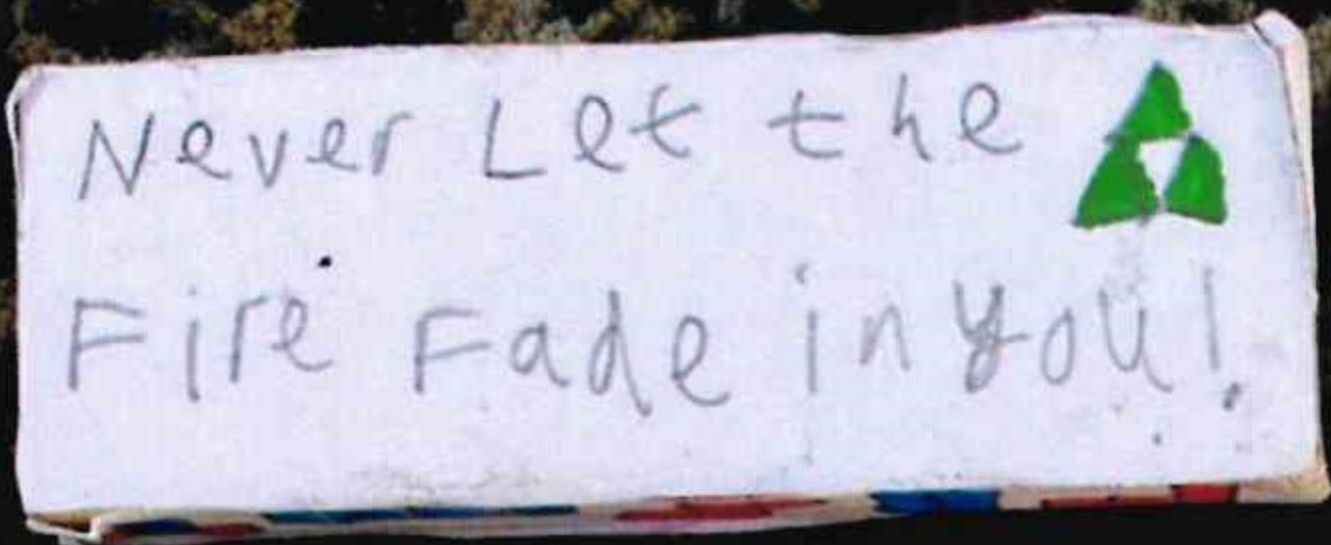 Never Let the
Fire Fade in you!